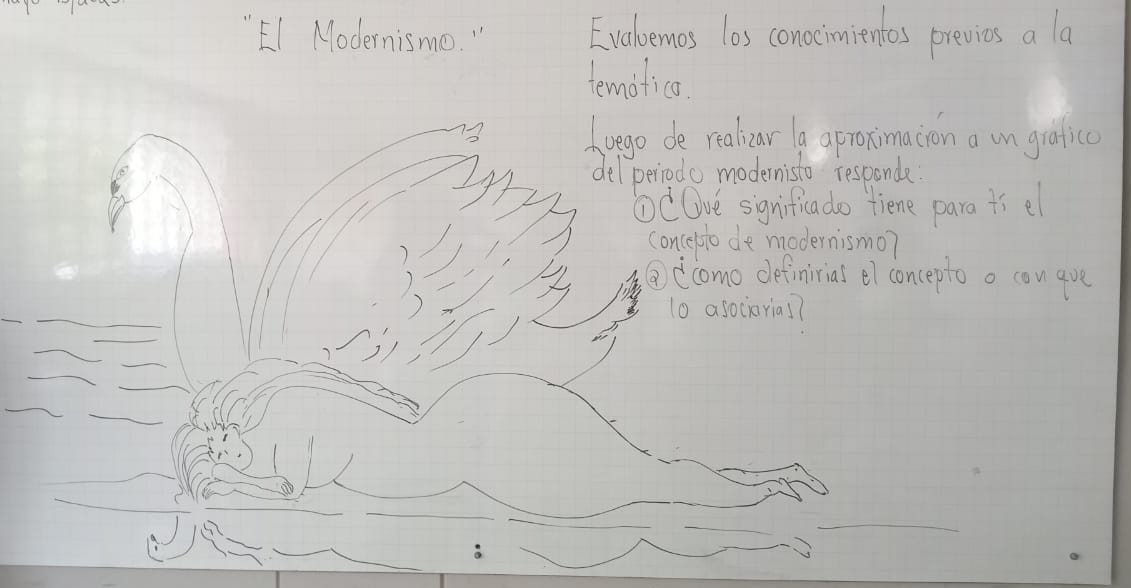 "El Modernismo."
Evaluemos los conocimientos previos a la
temática.
Luego de realizar la aproximación a un gráfico
del periodo modernista responde:
① ¿Qué significado tiene para tí el
concepto de modernismo?
② ¿como definirias el concepto o con que
lo asociarias?